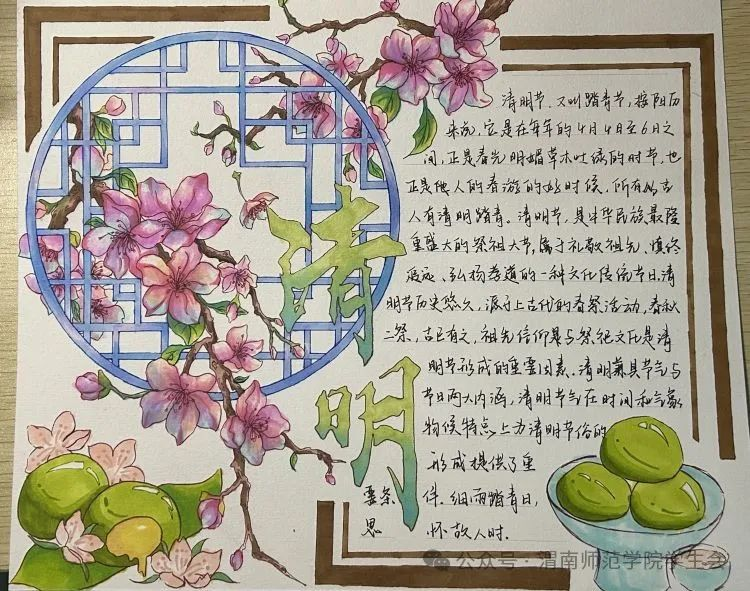 清明
清明节，又叫踏青节，按阳历
来说，它是在每年的4月4日至6日之
间，正是春光明媚草木吐绿的时节，也
正是人们春游的好时候，所有以古
人有清明踏青。清明节，是中华民族最隆
重盛大的祭祖大节，属于礼敬祖先、慎终
追远、弘扬孝道的一种文化传统节日。清
明节历史悠久，源于上古代的春祭活动，春秋
二祭，古已有之，祖先信仰是与祭祀文化是清
明节形成的重要因素。清明兼具节气与
节日两大内涵，清明节气在时间和气象
物候特点上为清明节俗的
形成提供了重
要条件。细雨踏青日，
思怀故人时。
公众号·渭南师范学院学生会